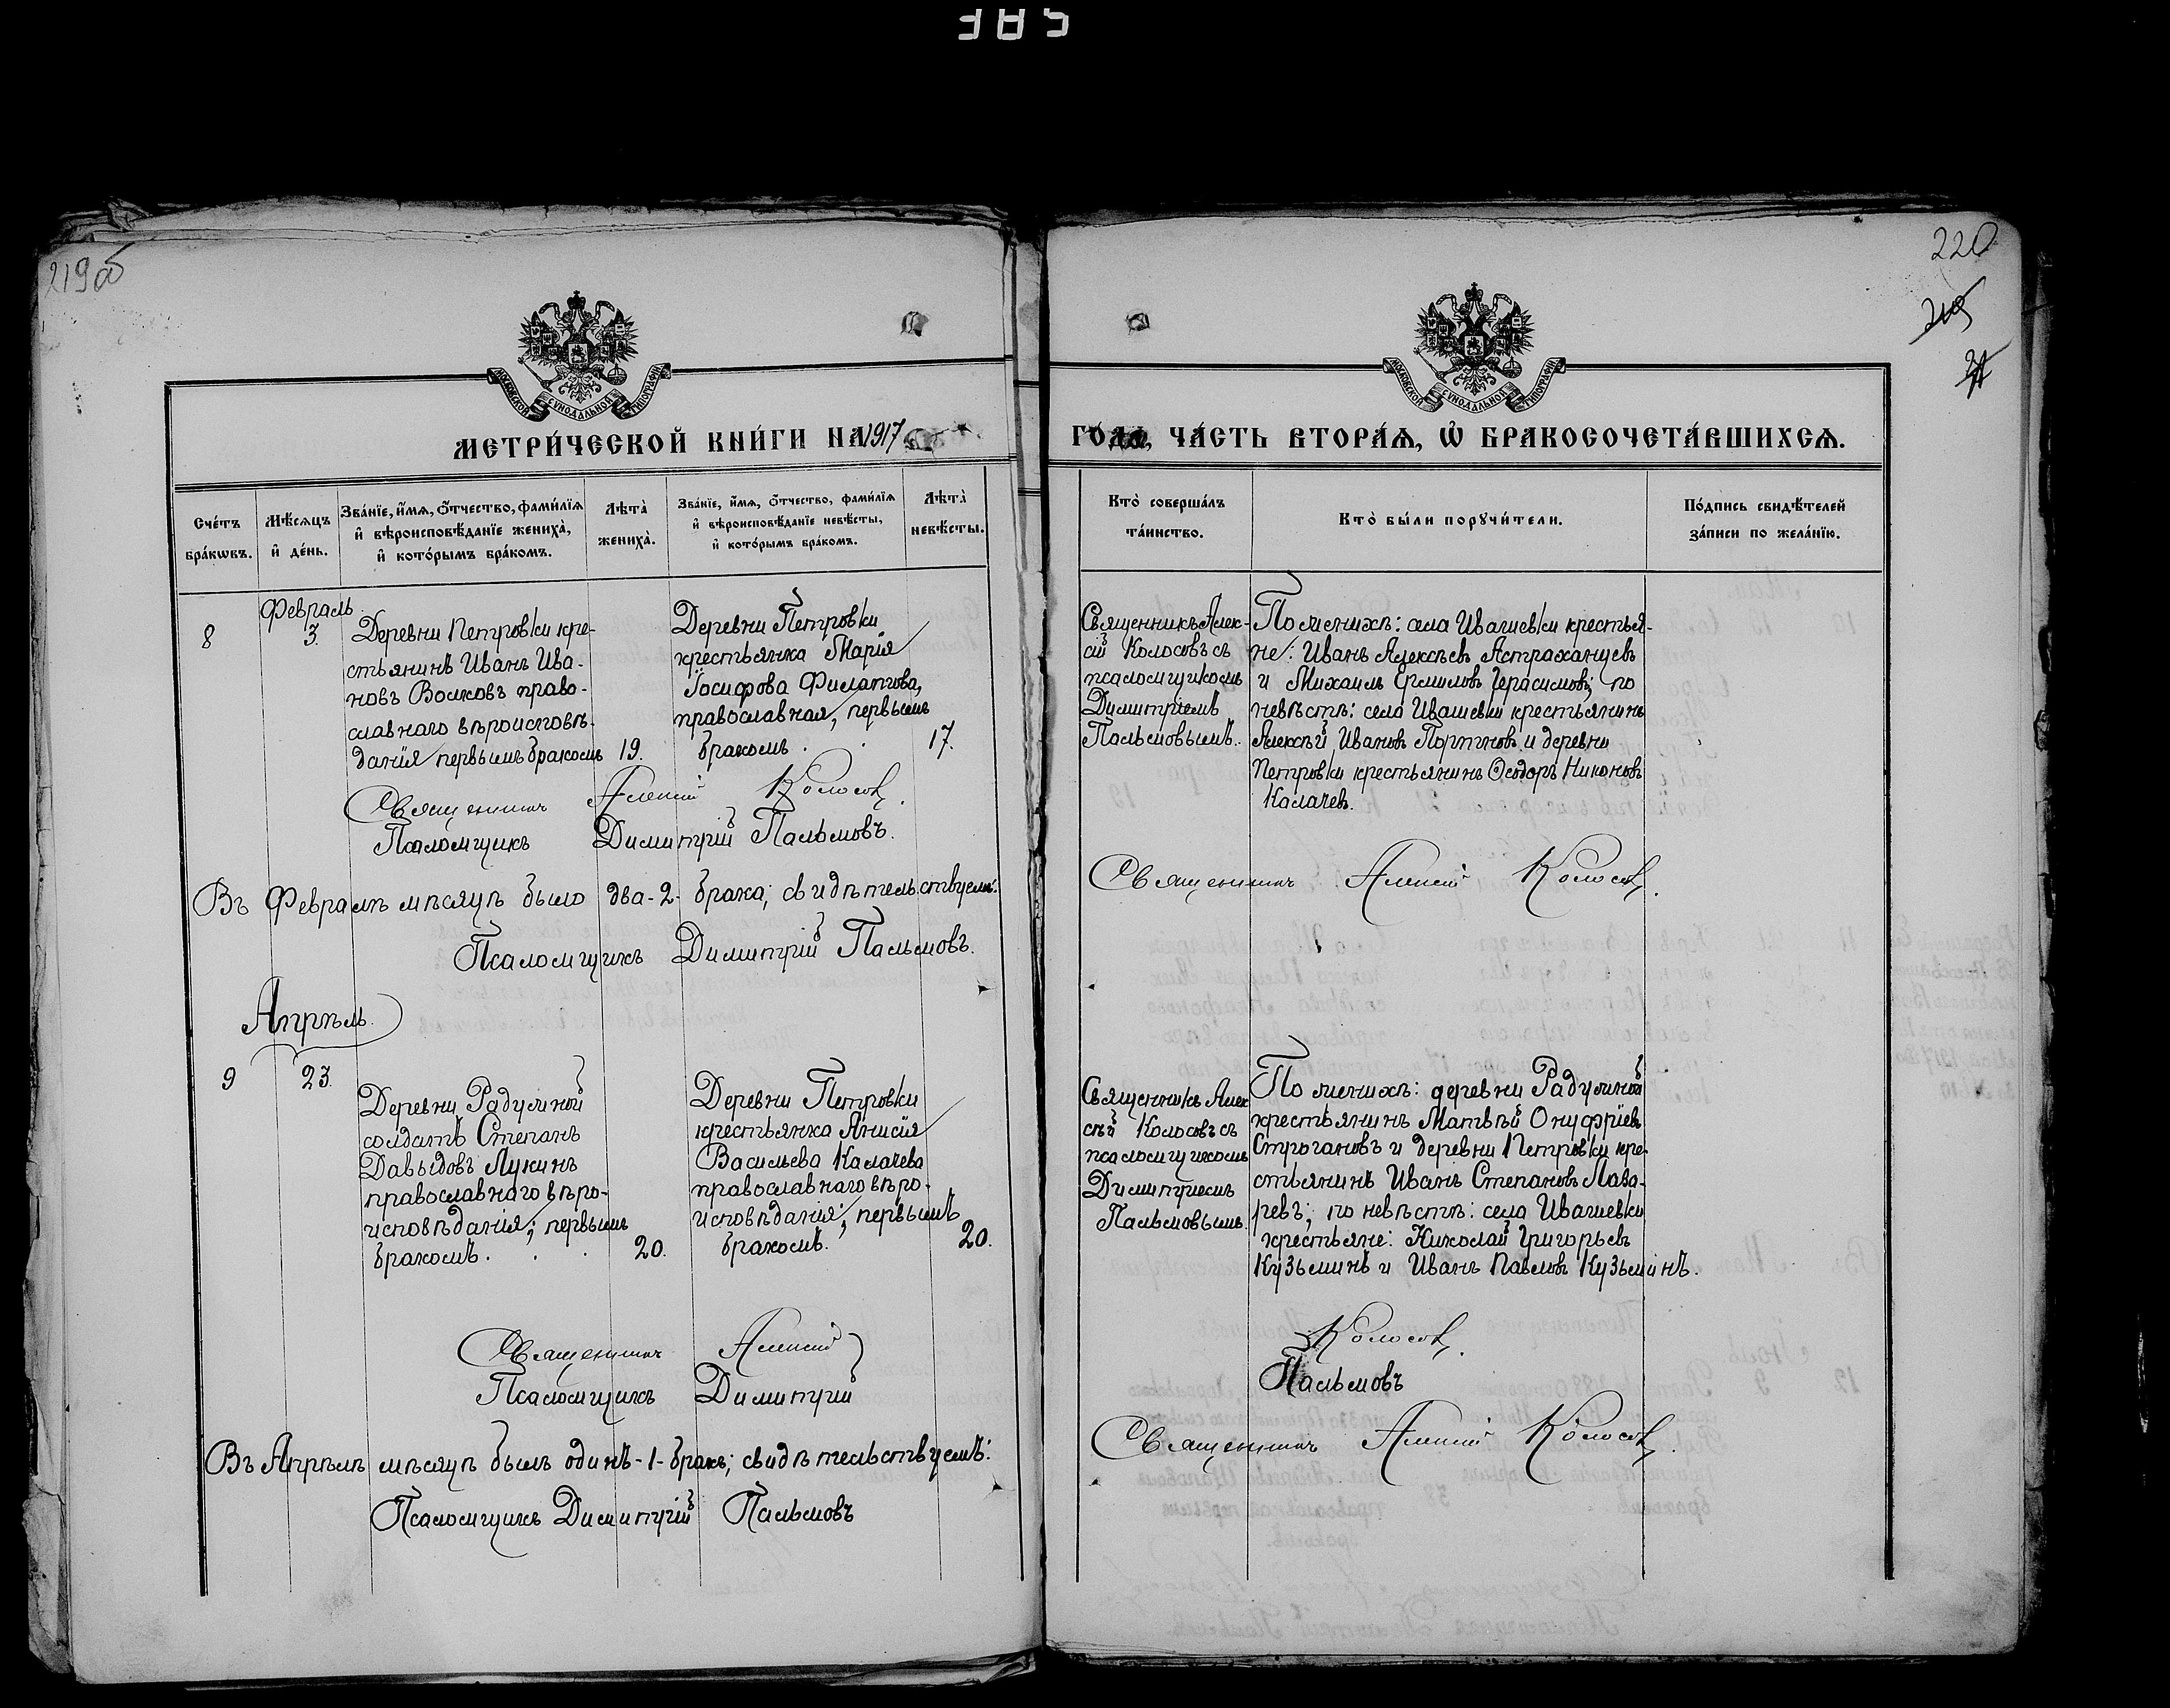 385
219об
220
219
МОСКОВСКОЙ СѴНОДАЛЬНОЙ ТИПОГРАФІИ
МОСКОВСКОЙ СѴНОДАЛЬНОЙ ТИПОГРАФІИ
МЕТРИ́ЧЕСКОЙ КНИ́ГИ НА 1917
ГО́ДА, ЧА́СТЬ ВТОРА́Ѧ, Ѽ БРАКОСОЧЕТА́ВШИХСѦ.
Сче́тъ бра́кѡвъ.
Мѣ́сѧцъ и҆ де́нь.
Зва́нїе, и҆́мѧ, ѻ҆́тчество, фами́лїѧ и҆ вѣроисповѣ́данїе жениха̀, и҆ кото́рымъ бра́комъ.
Лѣта̀ жениха̀.
Зва́нїе, и҆́мѧ, ѻ҆́тчество, фами́лїѧ и҆ вѣроисповѣ́данїе невѣ́сты, и҆ кото́рымъ бра́комъ.
Лѣта̀ невѣ́сты.
Кто̀ соверша́лъ та́инство.
Кто̀ бы́ли порꙋчи́тели.
По́дпись свидѣ́телей за́писи по жела́нїю.
8
Февраль
3.
Деревни Петровки кре-
стьянинъ Иванъ Ива-
новъ Волковъ право-
славнаго вѣроисповѣ-
данія, первымъ бракомъ
19.
Деревни Петровки
крестьянка Марія
Іосифова Филатова,
православная, первымъ
бракомъ.
17.
Священникъ Алек-
сій Колосовъ съ
псаломщикомъ
Димитріемъ
Пальмовымъ.
По женихѣ: села Ивашевки крестья-
не: Иванъ Алексѣевъ Астраханцевъ
и Михаилъ Ермиловъ Герасимовъ; по
невѣстѣ: села Ивашевки крестьянинъ
Алексѣй Ивановъ Портновъ и деревни
Петровки крестьянинъ Ѳеодоръ Никоновъ
Калачевъ.
Священникъ Алексій Колосовъ.
Псаломщикъ Димитрій Пальмовъ.
Въ Февралѣ мѣсяцѣ было два-2- брака; свидѣтельствуемъ:
Священникъ Алексій Колосовъ.
Псаломщикъ Димитрій Пальмовъ.
Апрѣль.
9
23.
Деревни Радужной
солдатъ Степанъ
Давыдовъ Лукинъ
православнаго вѣро-
исповѣданія; первымъ
бракомъ.
20.
Деревни Петровки
крестьянка Анисія
Васильева Калачева
православнаго вѣро-
исповѣданія; первымъ
бракомъ.
20.
Священникъ Алек
сѣй Колосовъ съ
псаломщикомъ
Димитріемъ
Пальмовымъ
По женихѣ: деревни Радужной
крестьянинъ Матвѣй Онуфріевъ
Строгановъ и деревни Петровки кре-
стьянинъ Иванъ Степановъ Лаза-
ревъ; по невѣстѣ: села Ивашевки
крестьяне: Николай Григорьевъ
Кузьминъ и Иванъ Павловъ Кузьминъ.
Священникъ Алексій Колосовъ.
Псаломщикъ Димитрій Пальмовъ
Въ Апрѣлѣ мѣсяцѣ былъ одинъ-1-бракъ; свидѣтельствуемъ:
Священникъ Алексій Колосовъ.
Псаломщикъ Димитрій Пальмовъ